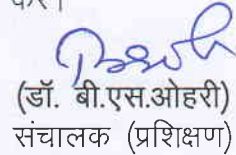 करें।
(डॉ. बी.एस.ओहरी)
संचालक (प्रशिक्षण)